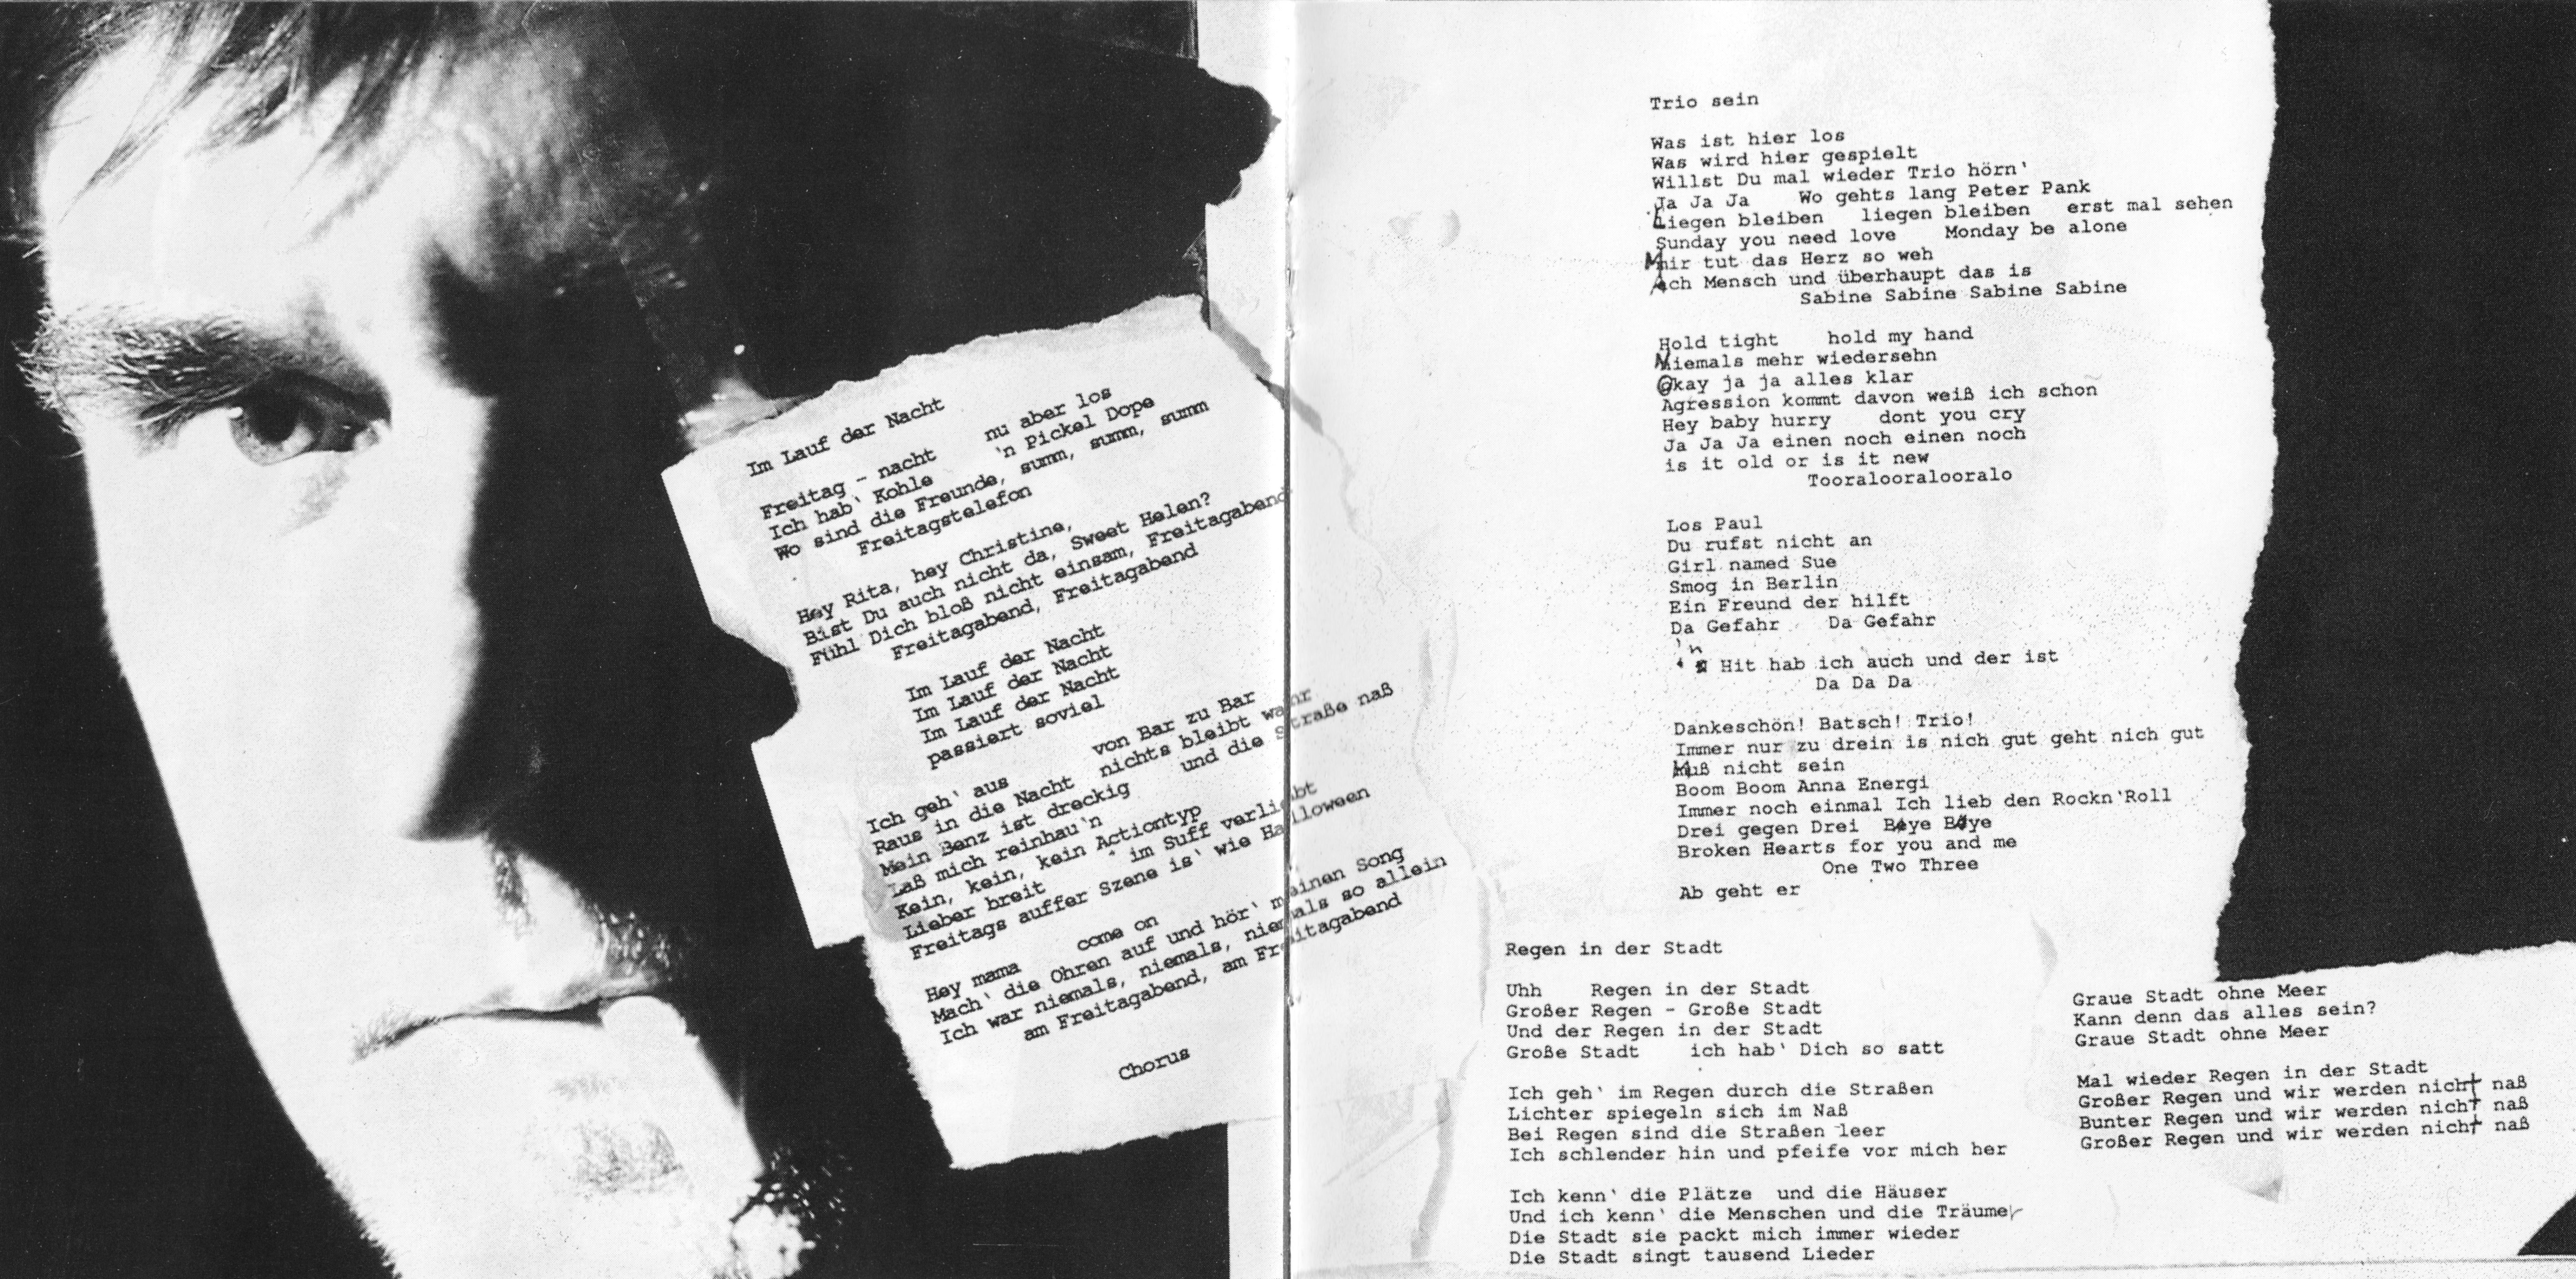 Im Lauf der Nacht
Freitag - nacht nu aber los
Ich hab' Kohle 'n Pickel Dope
Wo sind die Freunde, summ, summ, summ
Freitagstelefon
Hey Rita, hey Christine,
Bist Du auch nicht da, Sweet Helen?
Fühl Dich bloß nicht einsam, Freitagabend
Freitagabend, Freitagabend
Im Lauf der Nacht
Im Lauf der Nacht
Im Lauf der Nacht
passiert soviel
Ich geh' aus von Bar zu Bar
Raus in die Nacht nichts bleibt wahr
Mein Benz ist dreckig und die Straße naß
Laß mich reinhau'n
Kein, kein, kein Actiontyp
Lieber breit im Suff verliebt
Freitags auffer Szene is' wie Halloween
Hey mama come on
Mach' die Ohren auf und hör' meinen Song
Ich war niemals, niemals, niemals so allein
am Freitagabend, am Freitagabend
Chorus
Trio sein
Was ist hier los
Was wird hier gespielt
Willst Du mal wieder Trio hörn'
Ja Ja Ja Wo gehts lang Peter Pank
Liegen bleiben liegen bleiben erst mal sehen
Sunday you need love Monday be alone
Mir tut das Herz so weh
Ach Mensch und überhaupt das is
Sabine Sabine Sabine Sabine
Hold tight hold my hand
Niemals mehr wiedersehn
Okay ja ja alles klar
Agression kommt davon weiß ich schon
Hey baby hurry dont you cry
Ja Ja Ja einen noch einen noch
is it old or is it new
Tooralooralooralo
Los Paul
Du rufst nicht an
Girl named Sue
Smog in Berlin
Ein Freund der hilft
Da Gefahr Da Gefahr
'n Hit hab ich auch und der ist
Da Da Da
Dankeschön! Batsch! Trio!
Immer nur zu drein is nich gut geht nich gut
Muß nicht sein
Boom Boom Anna Energi
Immer noch einmal Ich lieb den Rockn'Roll
Drei gegen Drei Bye Bye
Broken Hearts for you and me
One Two Three
Ab geht er
Regen in der Stadt
Uhh Regen in der Stadt
Großer Regen - Große Stadt
Und der Regen in der Stadt
Große Stadt ich hab' Dich so satt
Ich geh' im Regen durch die Straßen
Lichter spiegeln sich im Naß
Bei Regen sind die Straßen leer
Ich schlender hin und pfeife vor mich her
Ich kenn' die Plätze und die Häuser
Und ich kenn' die Menschen und die Träumer
Die Stadt sie packt mich immer wieder
Die Stadt singt tausend Lieder
Graue Stadt ohne Meer
Kann denn das alles sein?
Graue Stadt ohne Meer
Mal wieder Regen in der Stadt
Großer Regen und wir werden nicht naß
Bunter Regen und wir werden nicht naß
Großer Regen und wir werden nicht naß